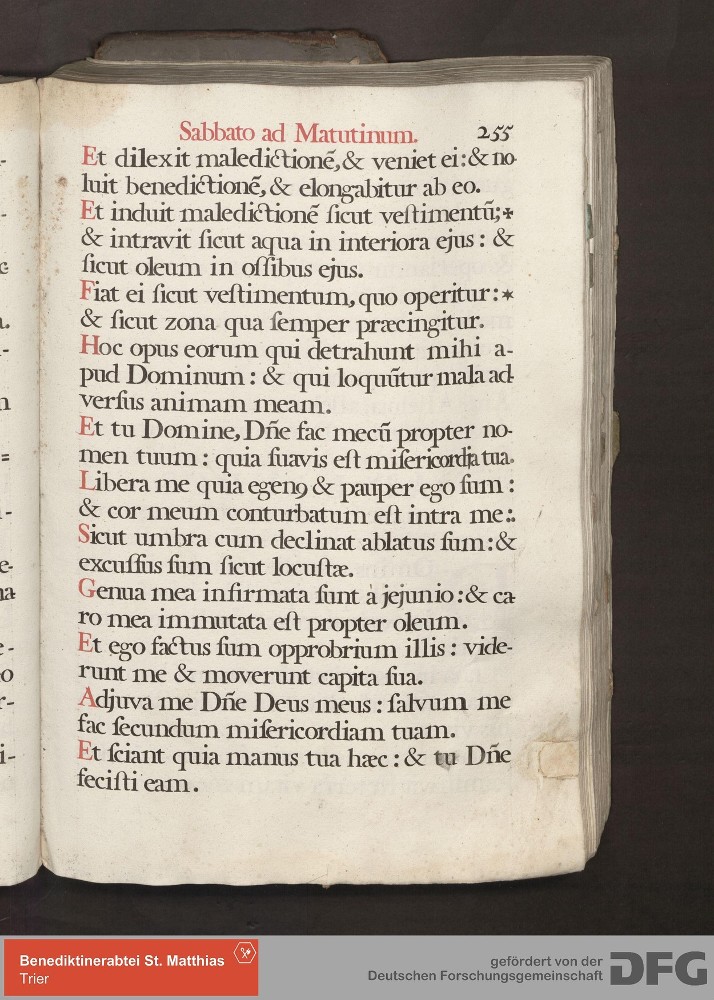 Sabbato ad Matutinum. 255
Et dilexit maledictionē, & veniet ei: & no-
luit benedictionē, & elongabitur ab eo.
Et induit maledictionē ſicut veſtimentū; +
& intravit ſicut aqua in interiora ejus: &
ſicut oleum in oſſibus ejus.
Fiat ei ſicut veſtimentum, quo operitur: *
& ſicut zona qua ſemper præcingitur.
Hoc opus eorum qui detrahunt mihi a-
pud Dominum: & qui loquūtur mala ad-
verſus animam meam.
Et tu Domine, Dn̄e fac mecū propter no-
men tuum: quia ſuavis eſt miſericordia tua.
Libera me quia egenꝰ & pauper ego ſum:
& cor meum conturbatum eſt intra me:.
Sicut umbra cum declinat ablatus ſum: &
excuſſus ſum ſicut locuſtæ.
Genua mea infirmata ſunt à jejunio: & ca-
ro mea immutata eſt propter oleum.
Et ego factus ſum opprobrium illis: vide-
runt me & moverunt capita ſua.
Adjuva me Dn̄e Deus meus: ſalvum me
fac ſecundum miſericordiam tuam.
Et ſciant quia manus tua hæc: & tu Dn̄e
feciſti eam.
Benediktinerabtei St. Matthias
Trier
gefördert von der
Deutschen Forschungsgemeinschaft DFG